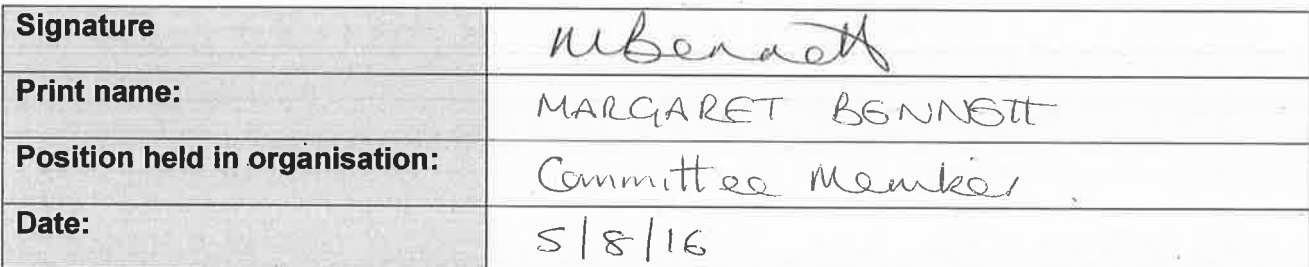 Signature MBennett
Print name: MARGARET BENNETT
Position held in organisation: Committee Member
Date: 5/8/16